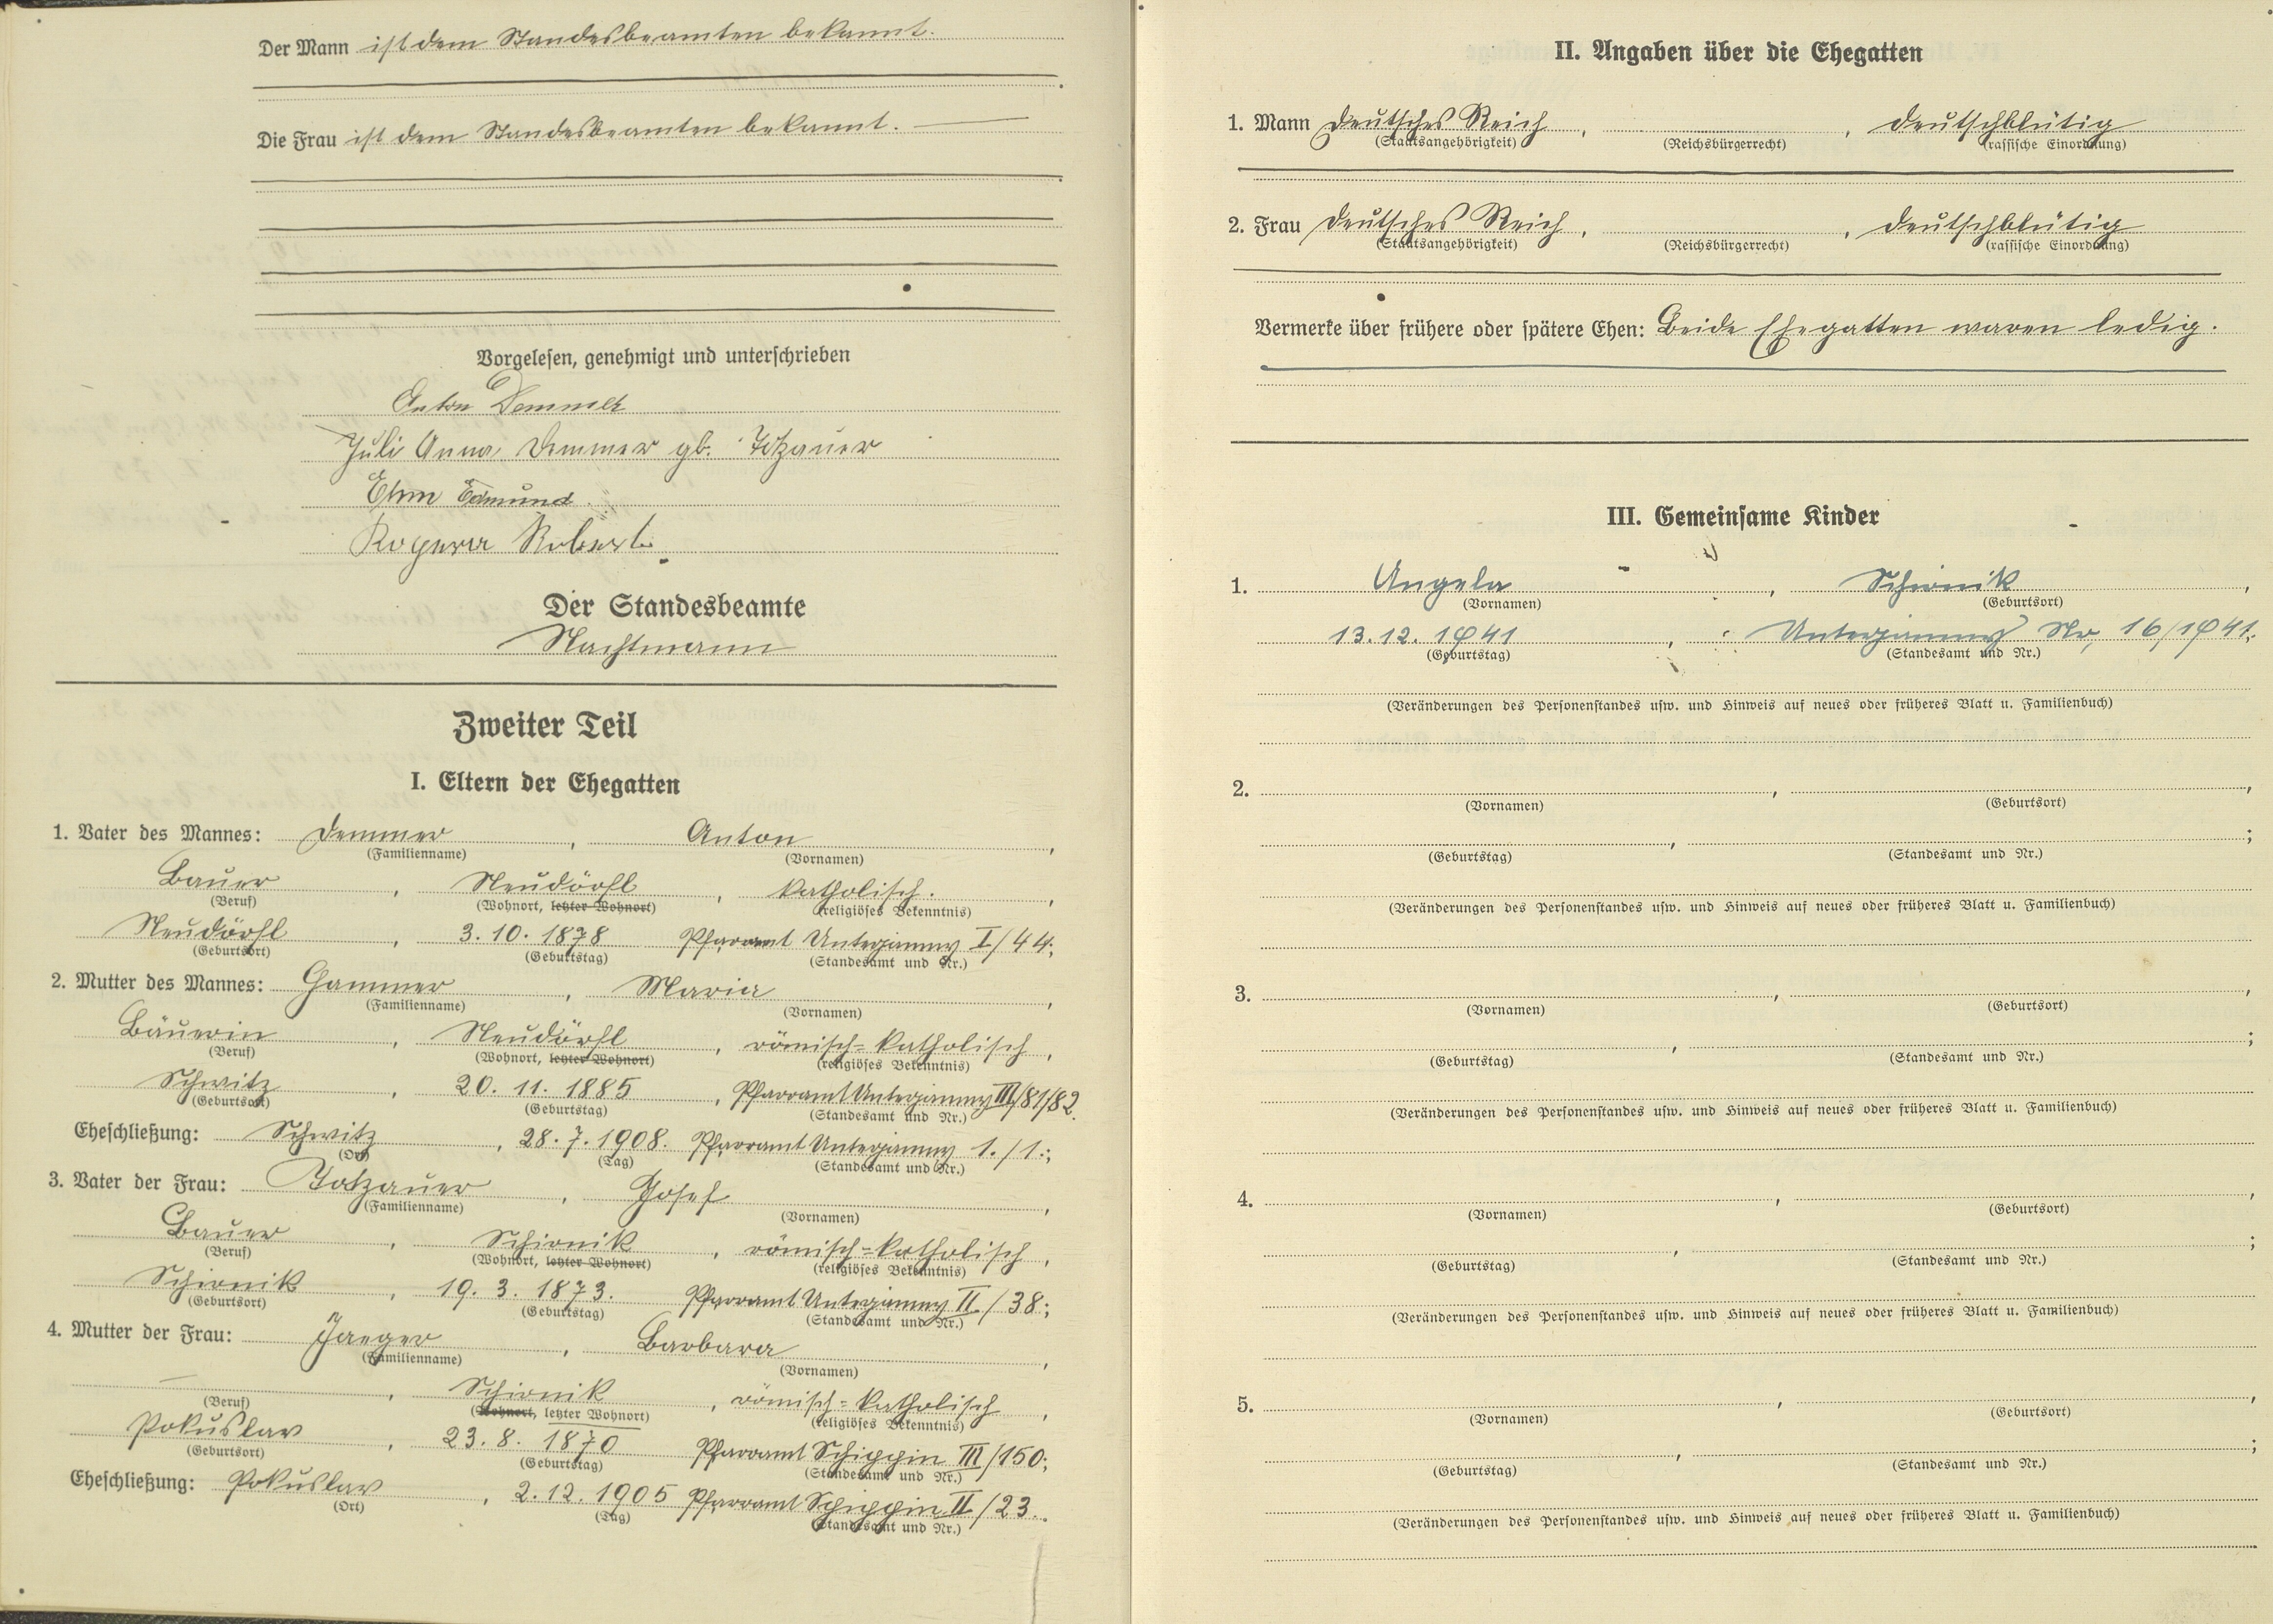 Der Mann ist dem Standesbeamten bekannt.
Die Frau ist dem Standesbeamten bekannt.
Vorgelesen, genehmigt und unterschrieben
Anton Demmer
Juli Anna Demmer gb. Totzauer
Elm Edmund
Robert
Der Standesbeamte
Nachtmann
Zweiter Teil
I. Eltern der Ehegatten
1. Vater des Mannes: Demmer, Anton,
(Familienname) (Vornamen)
Bauer, Neudörfl, katholisch.,
(Beruf) (Wohnort, letzter Wohnort) (religiöses Bekenntnis)
Neudörfl, 3. 10. 1878 Pfarramt Unterjamny I/44;
(Geburtsort) (Geburtstag) (Standesamt und Nr.)
2. Mutter des Mannes: Gammer, Maria,
(Familienname) (Vornamen)
Bäuerin, Neudörfl, römisch-katholisch,
(Beruf) (Wohnort, letzter Wohnort) (religiöses Bekenntnis)
Schwitz, 20. 11. 1885, Pfarramt Unterjamny III/81/82
(Geburtsort) (Geburtstag) (Standesamt und Nr.)
Eheschließung: Schwitz, 28. 7. 1908. Pfarramt Unterjamny 1./1.;
(Ort) (Tag) (Standesamt und Nr.)
3. Vater der Frau: Totzauer, Josef,
(Familienname) (Vornamen)
Bauer, Schirnik, römisch-katholisch,
(Beruf) (Wohnort, letzter Wohnort) (religiöses Bekenntnis)
Schirnik, 19. 3. 1873. Pfarramt Unterjamny II./38.;
(Geburtsort) (Geburtstag) (Standesamt und Nr.)
4. Mutter der Frau: Jaeger, Barbara,
(Familienname) (Vornamen)
—, Schirnik, römisch-katholisch,
(Beruf) (Wohnort, letzter Wohnort) (religiöses Bekenntnis)
Pokuslav, 23. 8. 1870 Pfarramt Schippin III/150;
(Geburtsort) (Geburtstag) (Standesamt und Nr.)
Eheschließung: Pokuslav, 2. 12. 1905 Pfarramt Schippin II/23.
(Ort) (Tag) (Standesamt und Nr.)
II. Angaben über die Ehegatten
1. Mann Deutsches Reich, , deutschblütig
(Staatsangehörigkeit) (Reichsbürgerrecht) (rassische Einordnung)
2. Frau Deutsches Reich, , deutschblütig
(Staatsangehörigkeit) (Reichsbürgerrecht) (rassische Einordnung)
Vermerke über frühere oder spätere Ehen: Beide Ehegatten waren ledig.
III. Gemeinsame Kinder
1. Angela, Schirnik,
(Vornamen) (Geburtsort)
13. 12. 1941, Unterjamny Nr, 16/1941;
(Geburtstag) (Standesamt und Nr.)
(Veränderungen des Personenstandes usw. und Hinweis auf neues oder früheres Blatt u. Familienbuch)
2. , ,
(Vornamen) (Geburtsort)
, ;
(Geburtstag) (Standesamt und Nr.)
(Veränderungen des Personenstandes usw. und Hinweis auf neues oder früheres Blatt u. Familienbuch)
3. , ,
(Vornamen) (Geburtsort)
, ;
(Geburtstag) (Standesamt und Nr.)
(Veränderungen des Personenstandes usw. und Hinweis auf neues oder früheres Blatt u. Familienbuch)
4. , ,
(Vornamen) (Geburtsort)
, ;
(Geburtstag) (Standesamt und Nr.)
(Veränderungen des Personenstandes usw. und Hinweis auf neues oder früheres Blatt u. Familienbuch)
5. , ,
(Vornamen) (Geburtsort)
, ;
(Geburtstag) (Standesamt und Nr.)
(Veränderungen des Personenstandes usw. und Hinweis auf neues oder früheres Blatt u. Familienbuch)